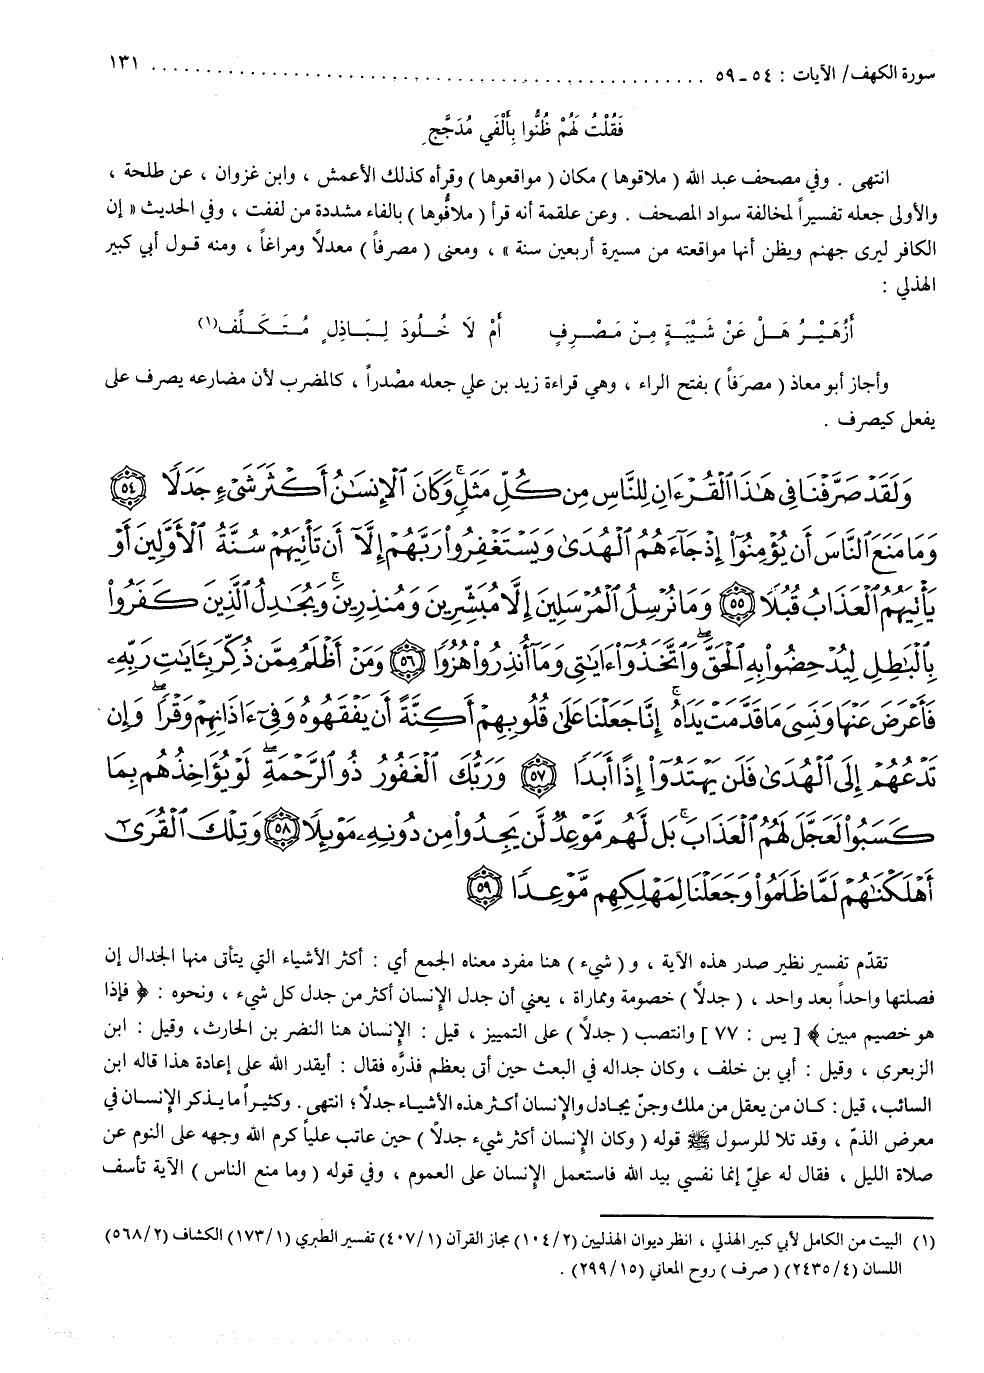 سورة الكهف/ الآيات : ٥٤ ـ ٥٩ ............................................................ ١٣١
فَقُلْتُ لَهُمْ ظُنُّوا بِأَلْفَي مُدَجَّجٍ
انتهى . وفي مصحف عبد الله ( ملاقوها ) مكان ( مواقعوها ) وقرأه كذلك الأعمش ، وابن غزوان ، عن طلحة ،
والأولى جعله تفسيراً لمخالفة سواد المصحف . وعن علقمة أنه قرأ ( ملافُّوها ) بالفاء مشددة من لففت ، وفي الحديث « إن
الكافر ليرى جهنم ويظن أنها مواقعته من مسيرة أربعين سنة » ، ومعنى ( مصرفاً ) معدلاً ومراغاً ، ومنه قول أبي كبير
الهذلي :
أَزُهَيْرُ هَلْ عَنْ شَيْبَةٍ مِنْ مَصْرِفٍ أَمْ لَا خُلُودَ لِبَاذِلٍ مُتَكَلِّف(١)
وأجاز أبو معاذ ( مصرَفاً ) بفتح الراء ، وهي قراءة زيد بن علي جعله مصْدراً ، كالمضرب لأن مضارعه يصرف على
يفعل كيصرف .
وَلَقَدْ صَرَّفْنَا فِي هَٰذَا الْقُرْءَانِ لِلنَّاسِ مِن كُلِّ مَثَلٍ ۚ وَكَانَ الْإِنسَٰنُ أَكْثَرَ شَىْءٍ جَدَلًا ٥٤
وَمَا مَنَعَ النَّاسَ أَن يُؤْمِنُوٓا۟ إِذْ جَآءَهُمُ الْهُدَىٰ وَيَسْتَغْفِرُوا۟ رَبَّهُمْ إِلَّآ أَن تَأْتِيَهُمْ سُنَّةُ الْأَوَّلِينَ أَوْ
يَأْتِيَهُمُ الْعَذَابُ قُبُلًا ٥٥ وَمَا نُرْسِلُ الْمُرْسَلِينَ إِلَّا مُبَشِّرِينَ وَمُنذِرِينَ ۚ وَيُجَٰدِلُ الَّذِينَ كَفَرُوا۟
بِالْبَٰطِلِ لِيُدْحِضُوا۟ بِهِ الْحَقَّ ۖ وَاتَّخَذُوٓا۟ ءَايَٰتِى وَمَآ أُنذِرُوا۟ هُزُوًا ٥٦ وَمَنْ أَظْلَمُ مِمَّن ذُكِّرَ بِـَٔايَٰتِ رَبِّهِۦ
فَأَعْرَضَ عَنْهَا وَنَسِىَ مَا قَدَّمَتْ يَدَاهُ ۚ إِنَّا جَعَلْنَا عَلَىٰ قُلُوبِهِمْ أَكِنَّةً أَن يَفْقَهُوهُ وَفِىٓ ءَاذَانِهِمْ وَقْرًا ۖ وَإِن
تَدْعُهُمْ إِلَى الْهُدَىٰ فَلَن يَهْتَدُوٓا۟ إِذًا أَبَدًا ٥٧ وَرَبُّكَ الْغَفُورُ ذُو الرَّحْمَةِ ۖ لَوْ يُؤَاخِذُهُم بِمَا
كَسَبُوا۟ لَعَجَّلَ لَهُمُ الْعَذَابَ ۚ بَل لَّهُم مَّوْعِدٌ لَّن يَجِدُوا۟ مِن دُونِهِۦ مَوْئِلًا ٥٨ وَتِلْكَ الْقُرَىٰٓ
أَهْلَكْنَٰهُمْ لَمَّا ظَلَمُوا۟ وَجَعَلْنَا لِمَهْلِكِهِم مَّوْعِدًا ٥٩
تقدّم تفسير نظير صدر هذه الآية ، و ( شيء ) هنا مفرد معناه الجمع أي : أكثر الأشياء التي يتأتى منها الجدال إن
فصلتها واحداً بعد واحد ، ( جدلاً ) خصومة ومماراة ، يعني أن جدل الإنسان أكثر من جدل كل شيء ، ونحوه : ﴿ فإذا
هو خصيم مبين ﴾ [ يس : ٧٧ ] وانتصب ( جدلاً ) على التمييز ، قيل : الإنسان هنا النضر بن الحارث، وقيل : ابن
الزبعرى ، وقيل : أبي بن خلف ، وكان جداله في البعث حين أتى بعظم فذرَّه فقال : أيقدر الله على إعادة هذا قاله ابن
السائب، قيل : كان من يعقل من ملك وجنّ يجادل والإنسان أكثر هذه الأشياء جدلاً ؛ انتهى . وكثيراً ما يذكر الإنسان في
معرض الذمّ ، وقد تلا للرسول ﷺ قوله ( وكان الإنسان أكثر شيء جدلاً ) حين عاتب علياً كرم الله وجهه على النوم عن
صلاة الليل ، فقال له عليّ إنما نفسي بيد الله فاستعمل الإنسان على العموم ، وفي قوله ( وما منع الناس ) الآية تأسف
(١) البيت من الكامل لأبي كبير الهذلي ، انظر ديوان الهذليين (٢/١٠٤) مجاز القرآن (١/٤٠٧) تفسير الطبري (١/١٧٣) الكشاف (٢/٥٦٨)
اللسان (٤/٢٤٣٥) ( صرف ) روح المعاني (١٥/٢٩٩) .